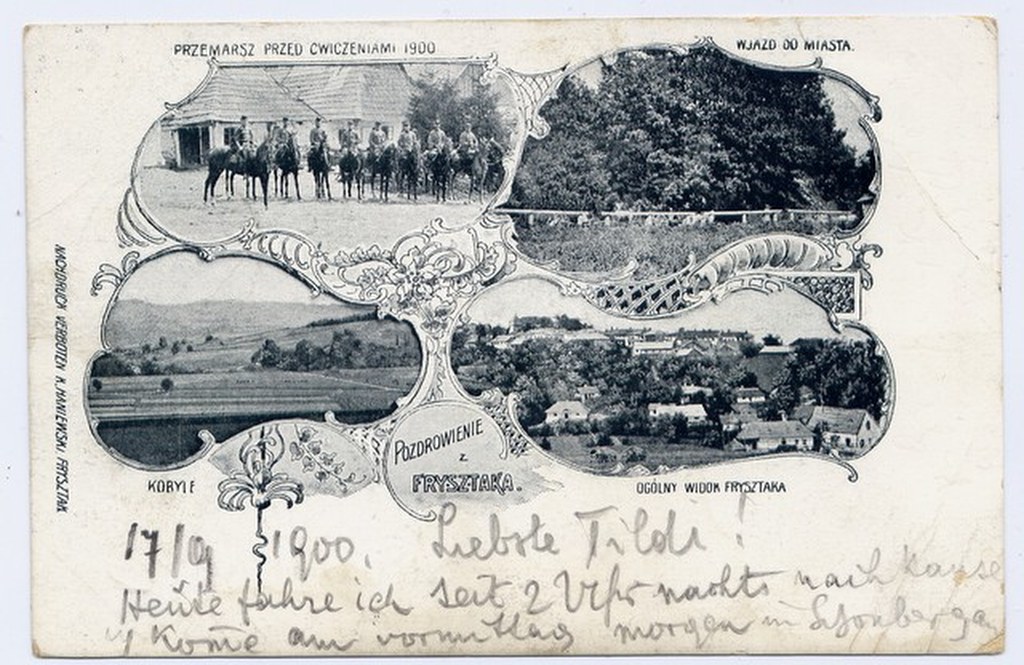 PRZEMARSZ PRZED CWICZENIAMI 1900
WJAZD DO MIASTA.
NACHDRUCK VERBOTEN K. MANIEWSKI, FRYSZTAK
KOBYLE
POZDROWIENIE
z
FRYSZTAKA.
OGÓLNY WIDOK FRYSZTAKA
17/9 1900. Liebste Tildi!
Heute fahre ich seit 2 Uhr nachts nach Hause
u Kom̄e am vormittag morgen in Schönberg an